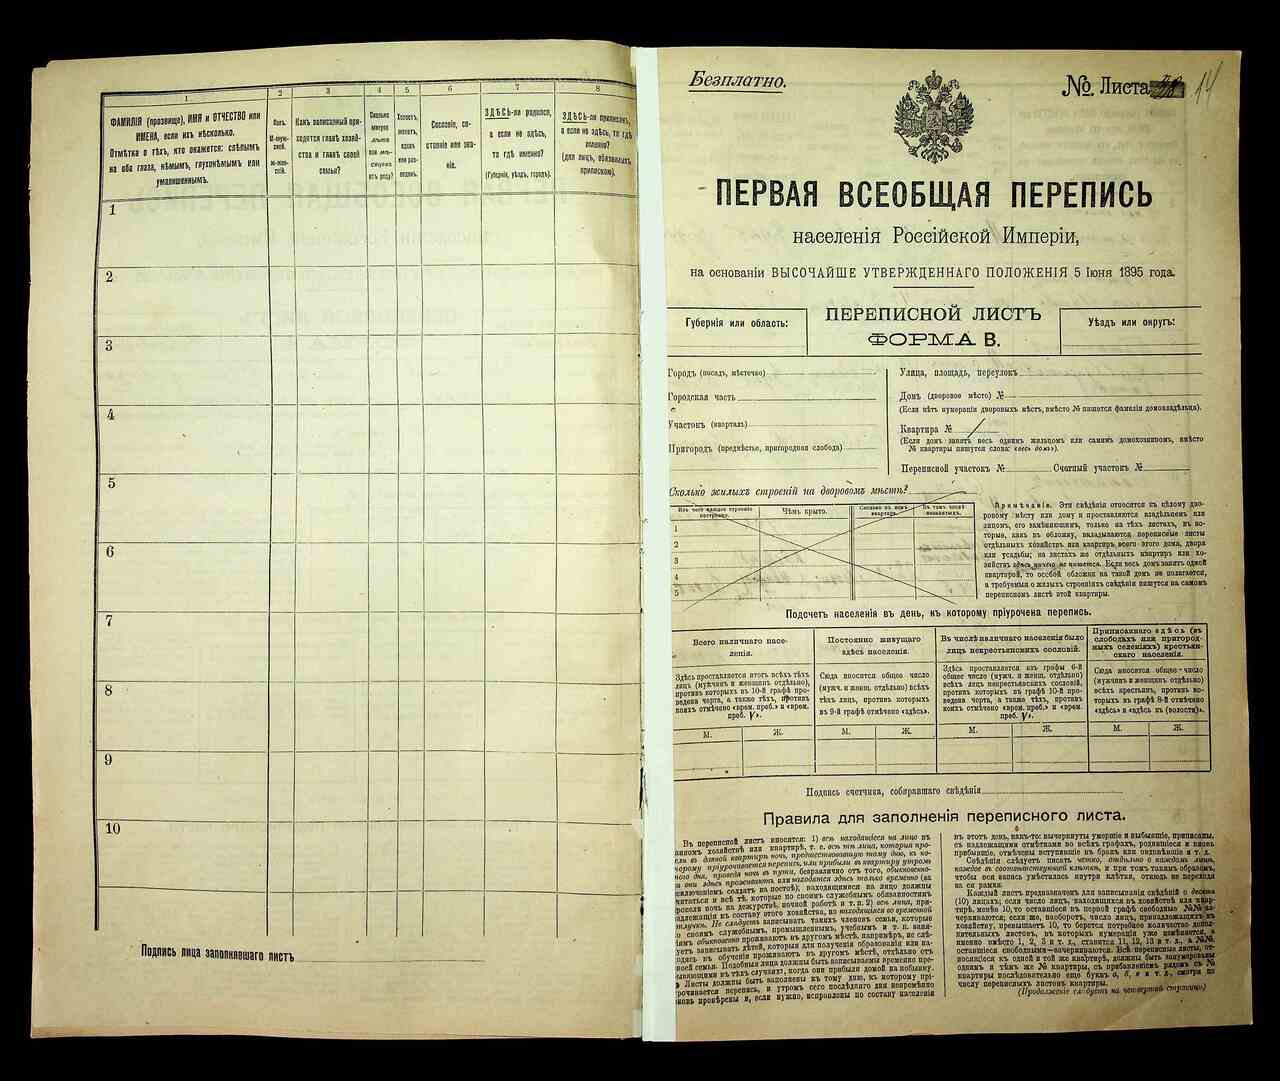 1.
2
3
4
5
6
7
8
ФАМИЛІЯ (прозвище), ИМЯ и ОТЧЕСТВО или
ИМЕНА, если ихъ нѣсколько.
Отмѣтка о тѣхъ, кто окажется: слѣпымъ
на оба глаза, нѣмымъ, глухонѣмымъ или
умалишеннымъ.
Полъ.
М-муж-
ской.
Ж-жен-
скій.
Какъ записанный при-
ходится главѣ хозяй-
ства и главѣ своей
семьи?
Сколько
минуло
лѣтъ
или мѣ-
сяцевъ
отъ роду?
Холостъ,
женатъ,
вдовъ
или раз-
веденъ.
Сословіе, со-
стояніе или зва-
ніе.
ЗДѢСЬ-ли родился,
а если не здѣсь,
то гдѣ именно?
(Губернія, уѣздъ, городъ).
ЗДѢСЬ-ли приписанъ,
а если не здѣсь, то гдѣ
именно?
(для лицъ, обязанныхъ
припискою).
1
2
3
4
5
6
7
8
9
10
Подпись лица заполнявшаго листъ
Безплатно.
№ Листа 14
ПЕРВАЯ ВСЕОБЩАЯ ПЕРЕПИСЬ
населенія Россійской Имперіи,
на основаніи ВЫСОЧАЙШЕ УТВЕРЖДЕННАГО ПОЛОЖЕНІЯ 5 Іюня 1895 года.
Губернія или область:
ПЕРЕПИСНОЙ ЛИСТЪ
ФОРМА В.
Уѣздъ или округъ:
Городъ (посадъ, мѣстечко)
Городская часть
Участокъ (кварталъ)
Пригородъ (предмѣстье, пригородная слобода)
Улица, площадь, переулокъ
Домъ (дворовое мѣсто) №
(Если нѣтъ нумераціи дворовыхъ мѣстъ, вмѣсто № пишется фамилія домовладѣльца).
Квартира №
(Если домъ занятъ весь однимъ жильцомъ или самимъ домохозяиномъ, вмѣсто
№ квартиры пишутся слова: «весь домъ»).
Переписной участокъ № Счетный участокъ №
Сколько жилыхъ строеній на дворовомъ мѣстѣ?
Изъ чего каждое строеніе
построено.
Чѣмъ крыто.
Сколько въ немъ
квартиръ.
Въ томъ числѣ
незанятыхъ.
1
2
3
4
5
Примѣчаніе. Эти свѣдѣнія относятся къ цѣлому дво-
ровому мѣсту или дому и проставляются владѣльцемъ или
лицомъ, его замѣняющимъ, только на тѣхъ листахъ, въ ко-
торые, какъ въ обложку, вкладываются переписные листы
отдѣльныхъ хозяйствъ или квартиръ всего этого дома, двора
или усадьбы; на листахъ же отдѣльныхъ квартиръ или хо-
зяйствъ здѣсь ничего не пишется. Если весь домъ занятъ одной
квартирой, то особой обложки на такой домъ не полагается,
а требуемыя о жилыхъ строеніяхъ свѣдѣнія пишутся на самомъ
переписномъ листѣ этой квартиры.
Подсчетъ населенія въ день, къ которому пріурочена перепись.
Всего наличнаго насе-
ленія.
Постоянно живущаго
здѣсь населенія.
Въ числѣ наличнаго населенія было
лицъ некрестьянскихъ сословій.
Приписаннаго здѣсь (въ
слободахъ или пригород-
ныхъ селеніяхъ) крестьян-
скаго населенія.
Здѣсь проставляется итогъ всѣхъ тѣхъ
лицъ (мужчинъ и женщинъ отдѣльно),
противъ которыхъ въ 10-й графѣ про-
ведена черта, а также тѣхъ, противъ
коихъ отмѣчено «врем. преб.» и «врем.
преб. V».
Сюда вносится общее число
(мужч. и женщ. отдѣльно) всѣхъ
тѣхъ лицъ, противъ которыхъ
въ 9-й графѣ отмѣчено «здѣсь».
Здѣсь проставляется изъ графы 6-й
общее число (мужч. и женщ. отдѣльно)
всѣхъ лицъ некрестьянскихъ сословій,
противъ которыхъ въ графѣ 10-й про-
ведена черта, а также тѣхъ, противъ
коихъ отмѣчено «врем. преб.» и «врем.
преб. V».
Сюда вносится общее число
(мужчинъ и женщинъ отдѣльно)
всѣхъ крестьянъ, противъ ко-
торыхъ въ графѣ 8-й отмѣчено
«здѣсь» и «здѣсь къ (волости)».
М. Ж. М. Ж. М. Ж. М. Ж.
Подпись счетчика, собиравшаго свѣдѣнія
Правила для заполненія переписного листа.
Въ переписной листъ вносятся: 1) всѣ находящіеся на лицо въ
хозяйствѣ или квартирѣ, т. е. всѣ тѣ лица, которыя про-
въ данной квартирѣ ночь, предшествовавшую тому дню, къ ко-
пріурочивается перепись, или прибыли въ квартиру утромъ
дня, проведя ночь въ пути, безразлично отъ того, обыкновен-
они здѣсь проживаютъ или находятся здѣсь только временно (за
солдатъ на постоѣ); находящимися на лицо должны
и всѣ тѣ, которые по своимъ служебнымъ обязанностямъ
ночь на дежурствѣ, ночной работѣ и т. п. 2) всѣ лица, при-
къ составу этого хозяйства, но находящіеся во временной
Не слѣдуетъ записывать такихъ членовъ семьи, которые
своимъ служебнымъ, промышленнымъ, учебнымъ и т. п. заня-
обыкновенно проживаютъ въ другомъ мѣстѣ, напримѣръ, не слѣ-
записывать дѣтей, которыя для полученія образованія или на-
въ обученіи проживаютъ въ другомъ мѣстѣ, отдѣльно отъ
семьи. Подобныя лица должны быть записываемы временно пре-
въ тѣхъ случаяхъ, когда они прибыли домой на побывку.
Листы должны быть заполнены къ тому дню, къ которому прі-
перепись, и утромъ сего послѣдняго дня непремѣнно
провѣрены и, если нужно, исправлены по составу населенія
въ этотъ день, какъ-то: вычеркнуты умершіе и выбывшіе, приписаны,
съ надлежащими отмѣтками во всѣхъ графахъ, родившіеся и вновь
прибывшіе, отмѣчены вступившіе въ бракъ или овдовѣвшіе и т. д.
Свѣдѣнія слѣдуетъ писать четко, отдѣльно о каждомъ лицѣ,
каждое въ соотвѣтствующей клѣткѣ, и при томъ такимъ образомъ,
чтобы вся запись умѣсталась внутри клѣтки, отнюдь не переходя
за ея рамки.
Каждый листъ предназначенъ для записыванія свѣдѣній о десяти
(10) лицахъ; если число лицъ, находящихся въ хозяйствѣ или квар-
тирѣ, менѣе 10, то оставшіеся въ первой графѣ свободные №№ за-
черкиваются; если же, наоборотъ, число лицъ, принадлежащихъ къ
хозяйству, превышаетъ 10, то берется потребное количество допол-
нительныхъ листовъ, въ которыхъ нумерація уже измѣняется, а
именно вмѣсто 1, 2, 3 и т. д., ставится 11, 12, 13 и т. д., а №№,
оставшіеся свободными—зачеркиваются. Всѣ переписные листы, от-
носящіеся къ одной и той же квартирѣ, должны быть занумерованы
однимъ и тѣмъ же № квартиры, съ прибавленіемъ рядомъ съ №
квартиры послѣдовательно еще буквъ а, б, в и т. д., смотря по
числу переписныхъ листовъ квартиры.
(Продолженіе слѣдуетъ на четвертой страницѣ)